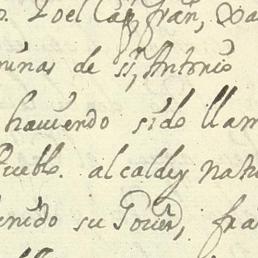 el Cap, fran,
minas de sn, Antonio
hauiendo side llam
Pueble. alcaldey natu
enido su Gouer, fra